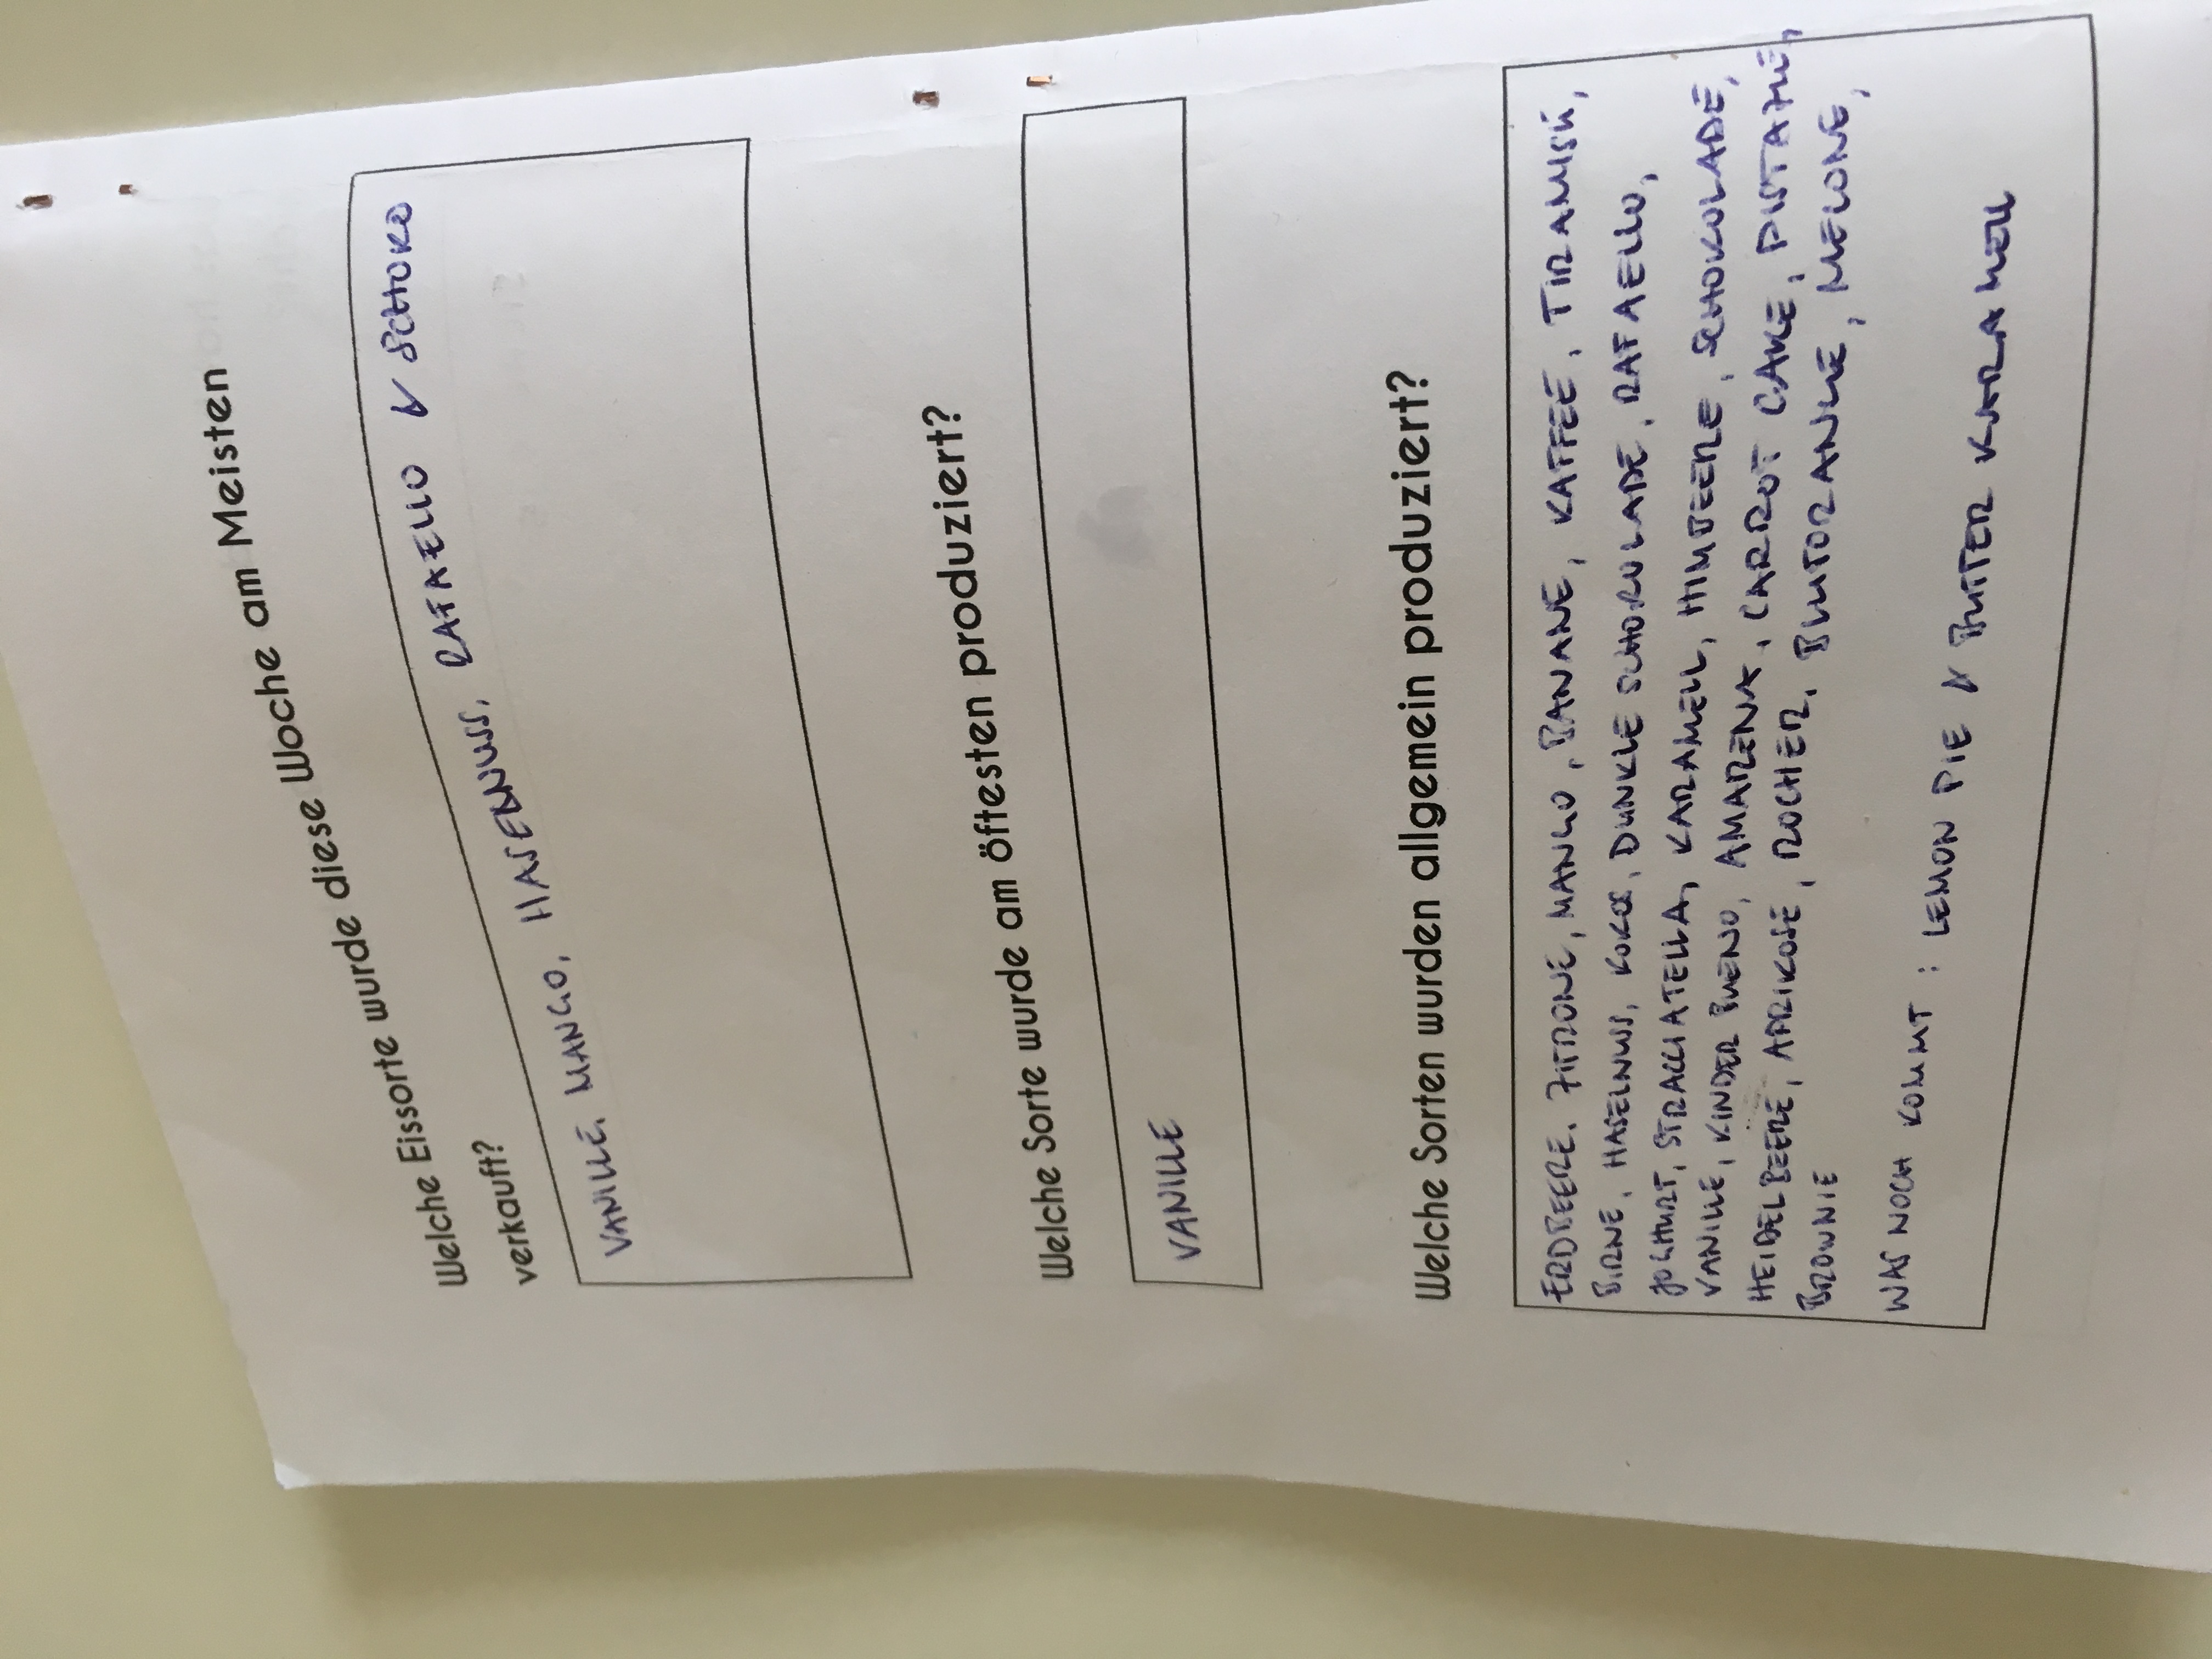 Welche Eissorte wurde diese Woche am Meisten
verkauft?
VANILLE, MANGO, HASELNUSS, RAFAELLO & SCHOKO
Welche Sorte wurde am öftesten produziert?
VANILLE
Welche Sorten wurden allgemein produziert?
ERDBEERE, ZITRONE, MANGO, BANANE, KAFFEE, TIRAMISU,
BIRNE, HASELNUSS, KOKOS, DUNKLE SCHOKOLADE, RAFAELLO,
JOGHURT, STRACCIATELLA, KARAMELL, HIMBEERE, SCHOKOLADE,
VANILLE, KINDER BUENO, AMARENA, CARROT CAKE, PISTAZIE,
HEIDELBEERE, APRIKOSE, ROCHER, BLUTORANGE, MELONE,
BROWNIE
WAS NOCH KOMMT : LEMON PIE & BUTTER KARAMELL